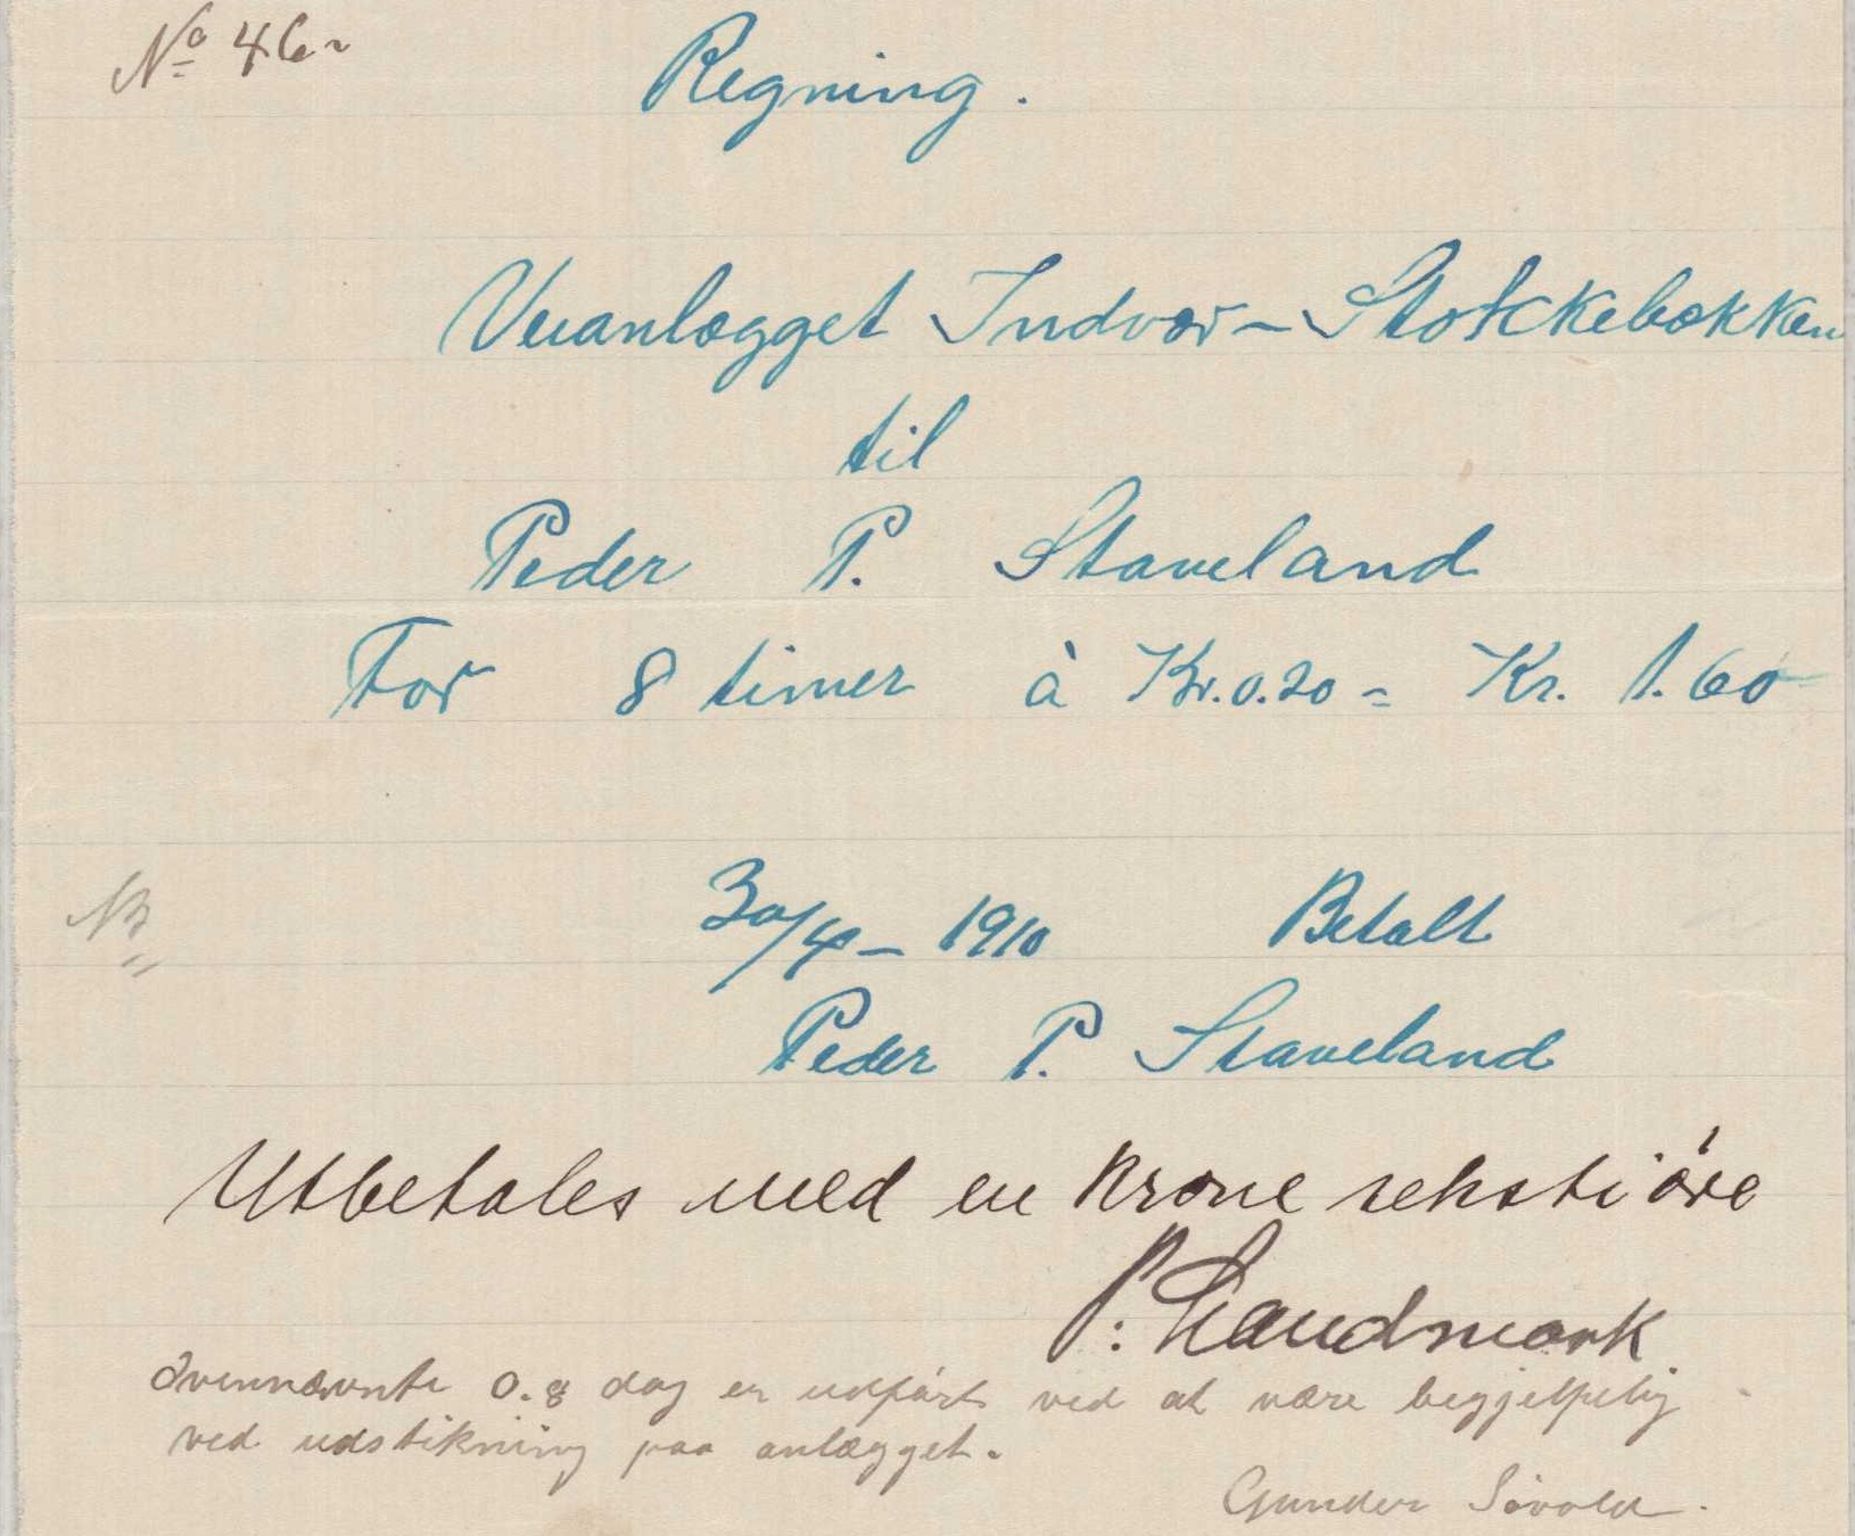 No 46
Regning.
Veianlægget Indvær - Stokkebækken
til
Peder P. Staveland
For 8 timer à Kr. 0.20 = Kr. 1.60
30/4 - 1910 Betalt
NB
Peder P. Staveland
Utbetales med en krone sekstiöre
P. Landmark.
Ovennævnte 0.8 dag er udført ved at være begjelpelig
ved udstikning paa anlægget.
Gunder Søvold.